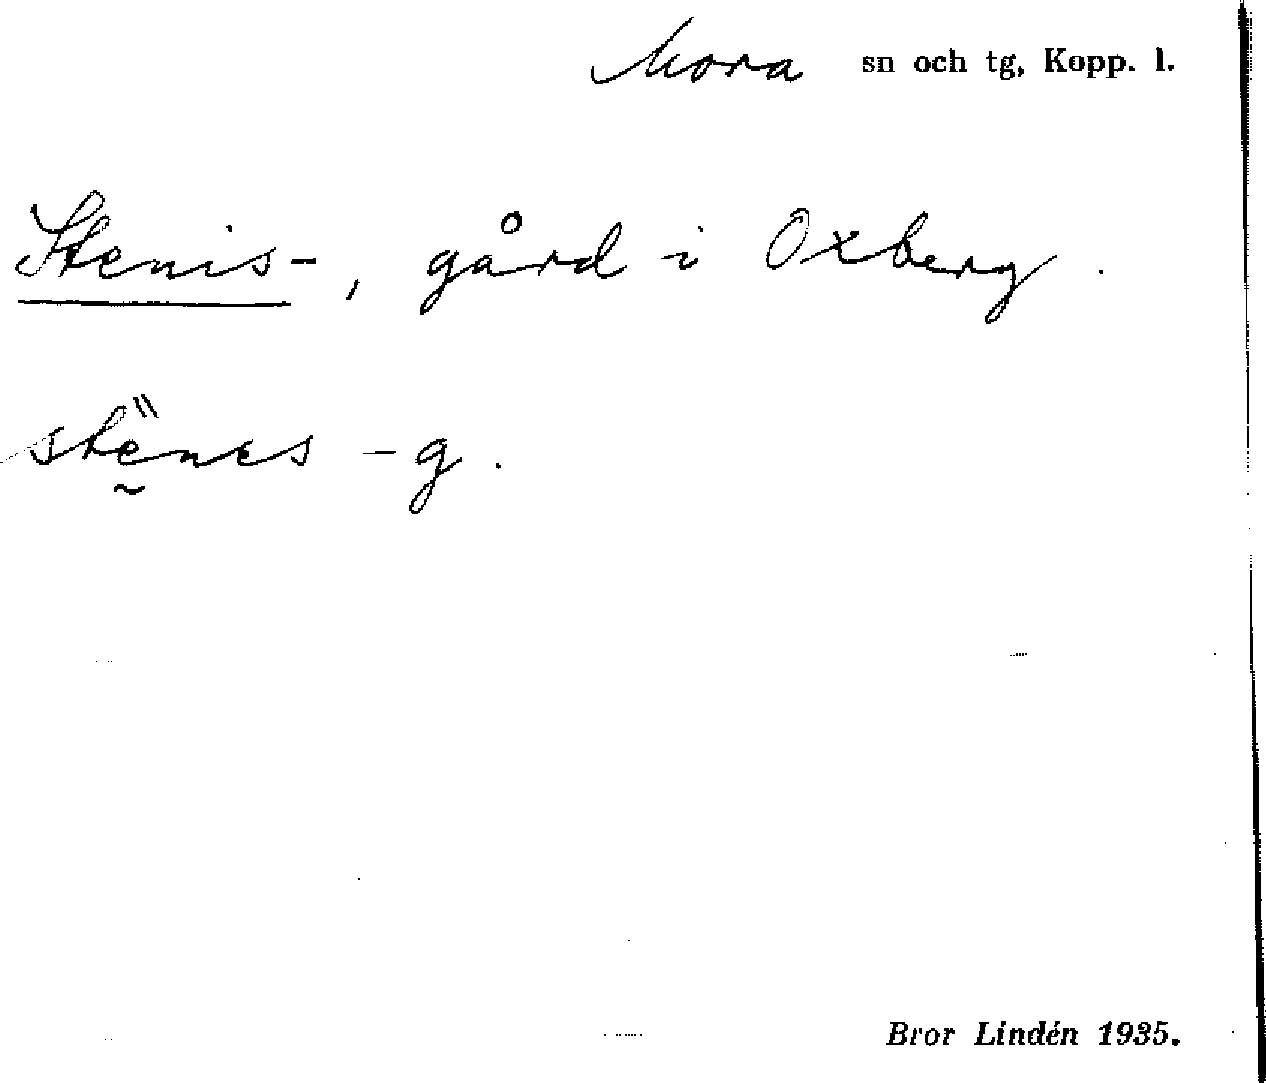 Mora sn och tg, Kopp. l.
Stenis-, gård i Oxberg.
stḛ̀̀nes -g.
Bror Lindén 1935.